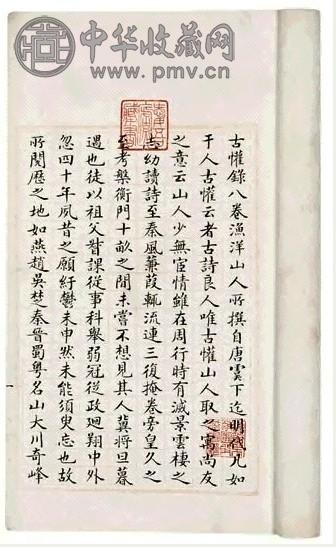 中华收藏网
www.pmv.cn
古懽錄八卷漁洋山人所撰自唐虞下迄明代凡如
干人古懽云者古詩良人唯古懽山人取之寓尚友
之意云山人少無宦情雖在周行時有滅景雲棲之
志幼讀詩至秦風蒹葭輒流連三復掩卷旁皇久之
至考槃衡門十畝之間未嘗不想見其人冀將旦暮
遇也徒以祖父督課從事科舉弱冠從政迴翔中外
忽四十年夙昔之願紆鬱未申然未能須臾忘也故
所閱歷之地如燕趙吳楚秦晉蜀粵名山大川奇峰